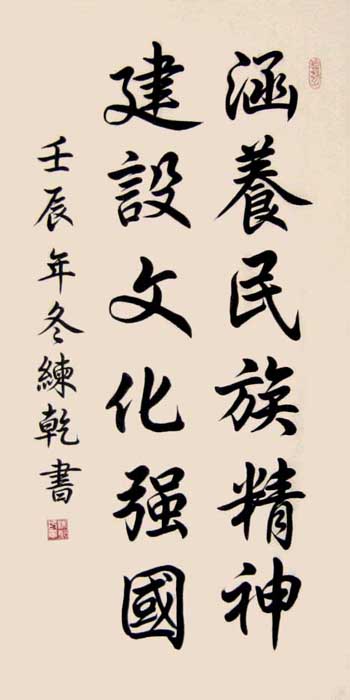 涵養民族精神
建設文化强國
壬辰年冬練乾書